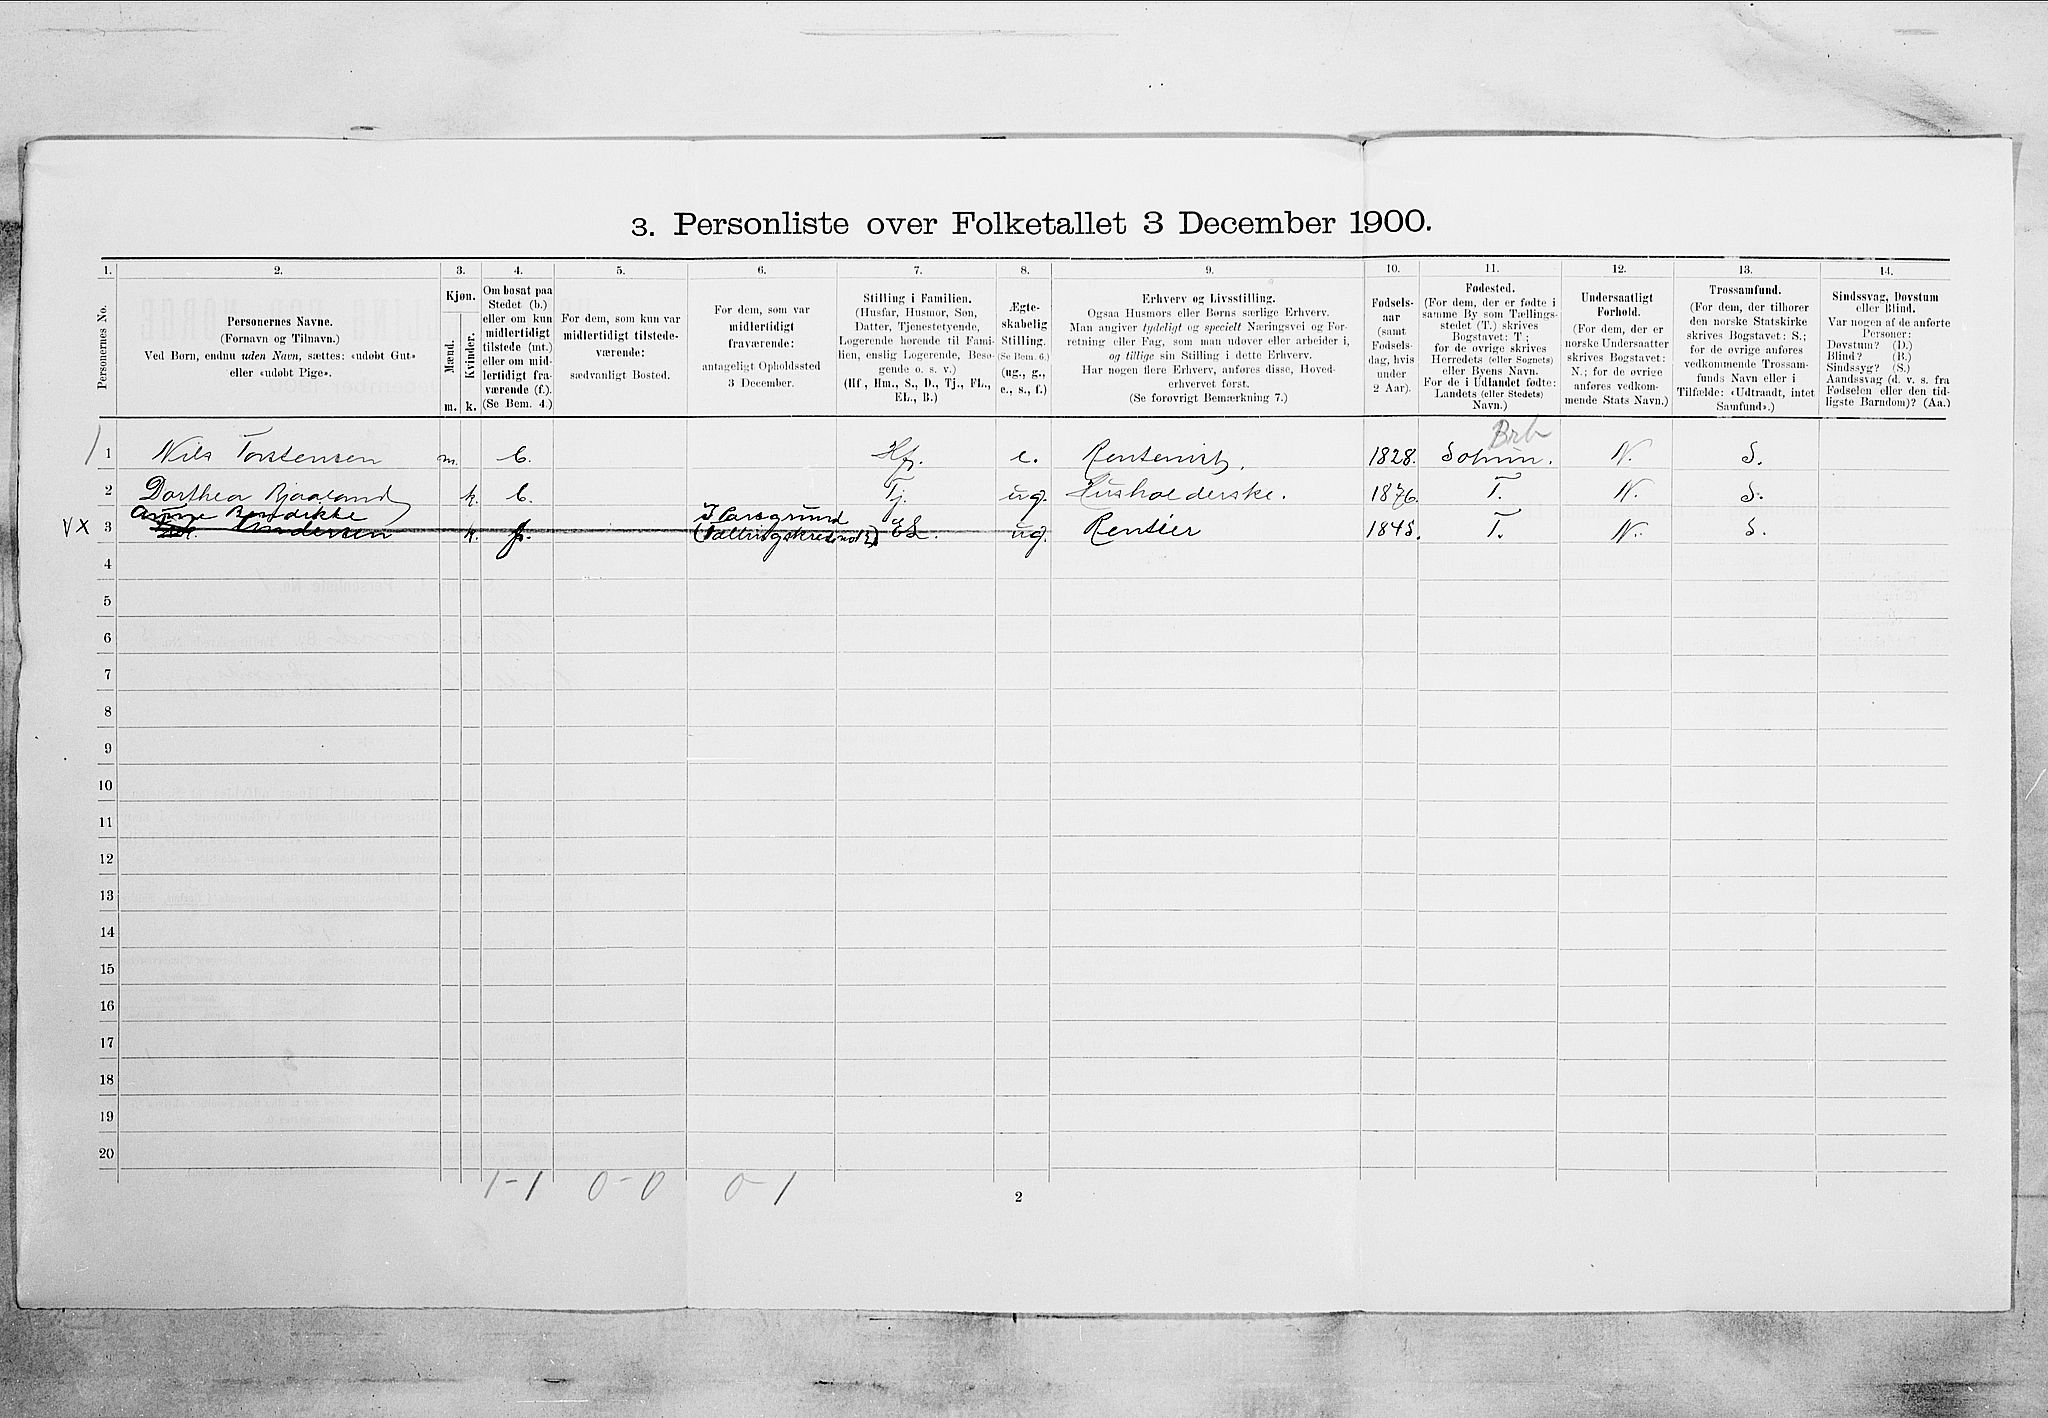 3. Personliste over Folketallet 3 December 1900.
1. 2. 3. 4. 5. 6. 7. 8. 9. 10. 11. 12. 13. 14.
Personernes No.
Personernes Navne.
(Fornavn og Tilnavn.)
Ved Børn, endnu uden Navn, sættes: «udøbt Gut»
eller «udøbt Pige».
Kjøn.
Mænd.
Kvinder.
m. k.
Om bosat paa
Stedet (b.)
eller om kun
midlertidigt
tilstede (mt.)
eller om mid-
lertidigt fra-
værende (f.).
(Se Bem. 4.)
For dem, som kun var
midlertidigt tilstede-
værende:
sædvanligt Bosted.
For dem, som var
midlertidigt
fraværende:
antageligt Opholdssted
3 December.
Stilling i Familien.
(Husfar, Husmor, Søn,
Datter, Tjenestetyende,
Logerende hørende til Fami-
lien, enslig Logerende, Besø-
gende o. s. v.)
(Hf, Hm., S., D., Tj., FL.,
EL., B.)
Ægte-
skabelig
Stilling.
(Se Bem. 6.)
(ug., g.,
e., s., f.)
Erhverv og Livsstilling.
Ogsaa Husmors eller Børns særlige Erhverv.
Man angiver tydeligt og specielt Næringsvei og For-
retning eller Fag, som man udøver eller arbeider i,
og tillige sin Stilling i dette Erhverv.
Har nogen flere Erhverv, anføres disse, Hoved-
erhvervet først.
(Se forøvrigt Bemærkning 7.)
Fødsels-
aar
(samt
Fødsels-
dag, hvis
under
2 Aar).
Fødested.
(For dem, der er fødte i
samme By som Tællings-
stedet (T.) skrives
Bogstavet: T.;
for de øvrige skrives
Herredets (eller Sognets)
eller Byens Navn.
For de i Udlandet fødte:
Landets (eller Stedets)
Navn.)
Undersaatligt
Forhold.
(For dem, der er
norske Undersaatter
skrives Bogstavet:
N.; for de øvrige
anføres vedkom-
mende Stats Navn.)
Trossamfund.
(For dem, der tilhører
den norske Statskirke
skrives Bogstavet: S.;
for de øvrige anføres
vedkommende Trossam-
funds Navn eller i
Tilfælde: «Udtraadt, intet
Samfund».)
Sindssvag, Døvstum
eller Blind.
Var nogen af de anførte
Personer:
Døvstum? (D.)
Blind? (B.)
Sindssyg? (S.)
Aandssvag (d. v. s. fra
Fødselen eller den tid-
ligste Barndom)? (Aa.)
1 Nils Torstensen m. b. Hf. e. Rentenist. 1828. N. S.
2 Dorthea Bjaaland k. b. Tj. ug. Husholderske. 1876. T. N. S.
Anne Bendikke
I Porsgrund
V X 3 Andersen k. f. EL. ug. Rentier 1845. T. N. S.
4
5
6
7
8
9
10
11
12
13
14
15
16
17
18
19
20
1-1 0-0 0-1
2